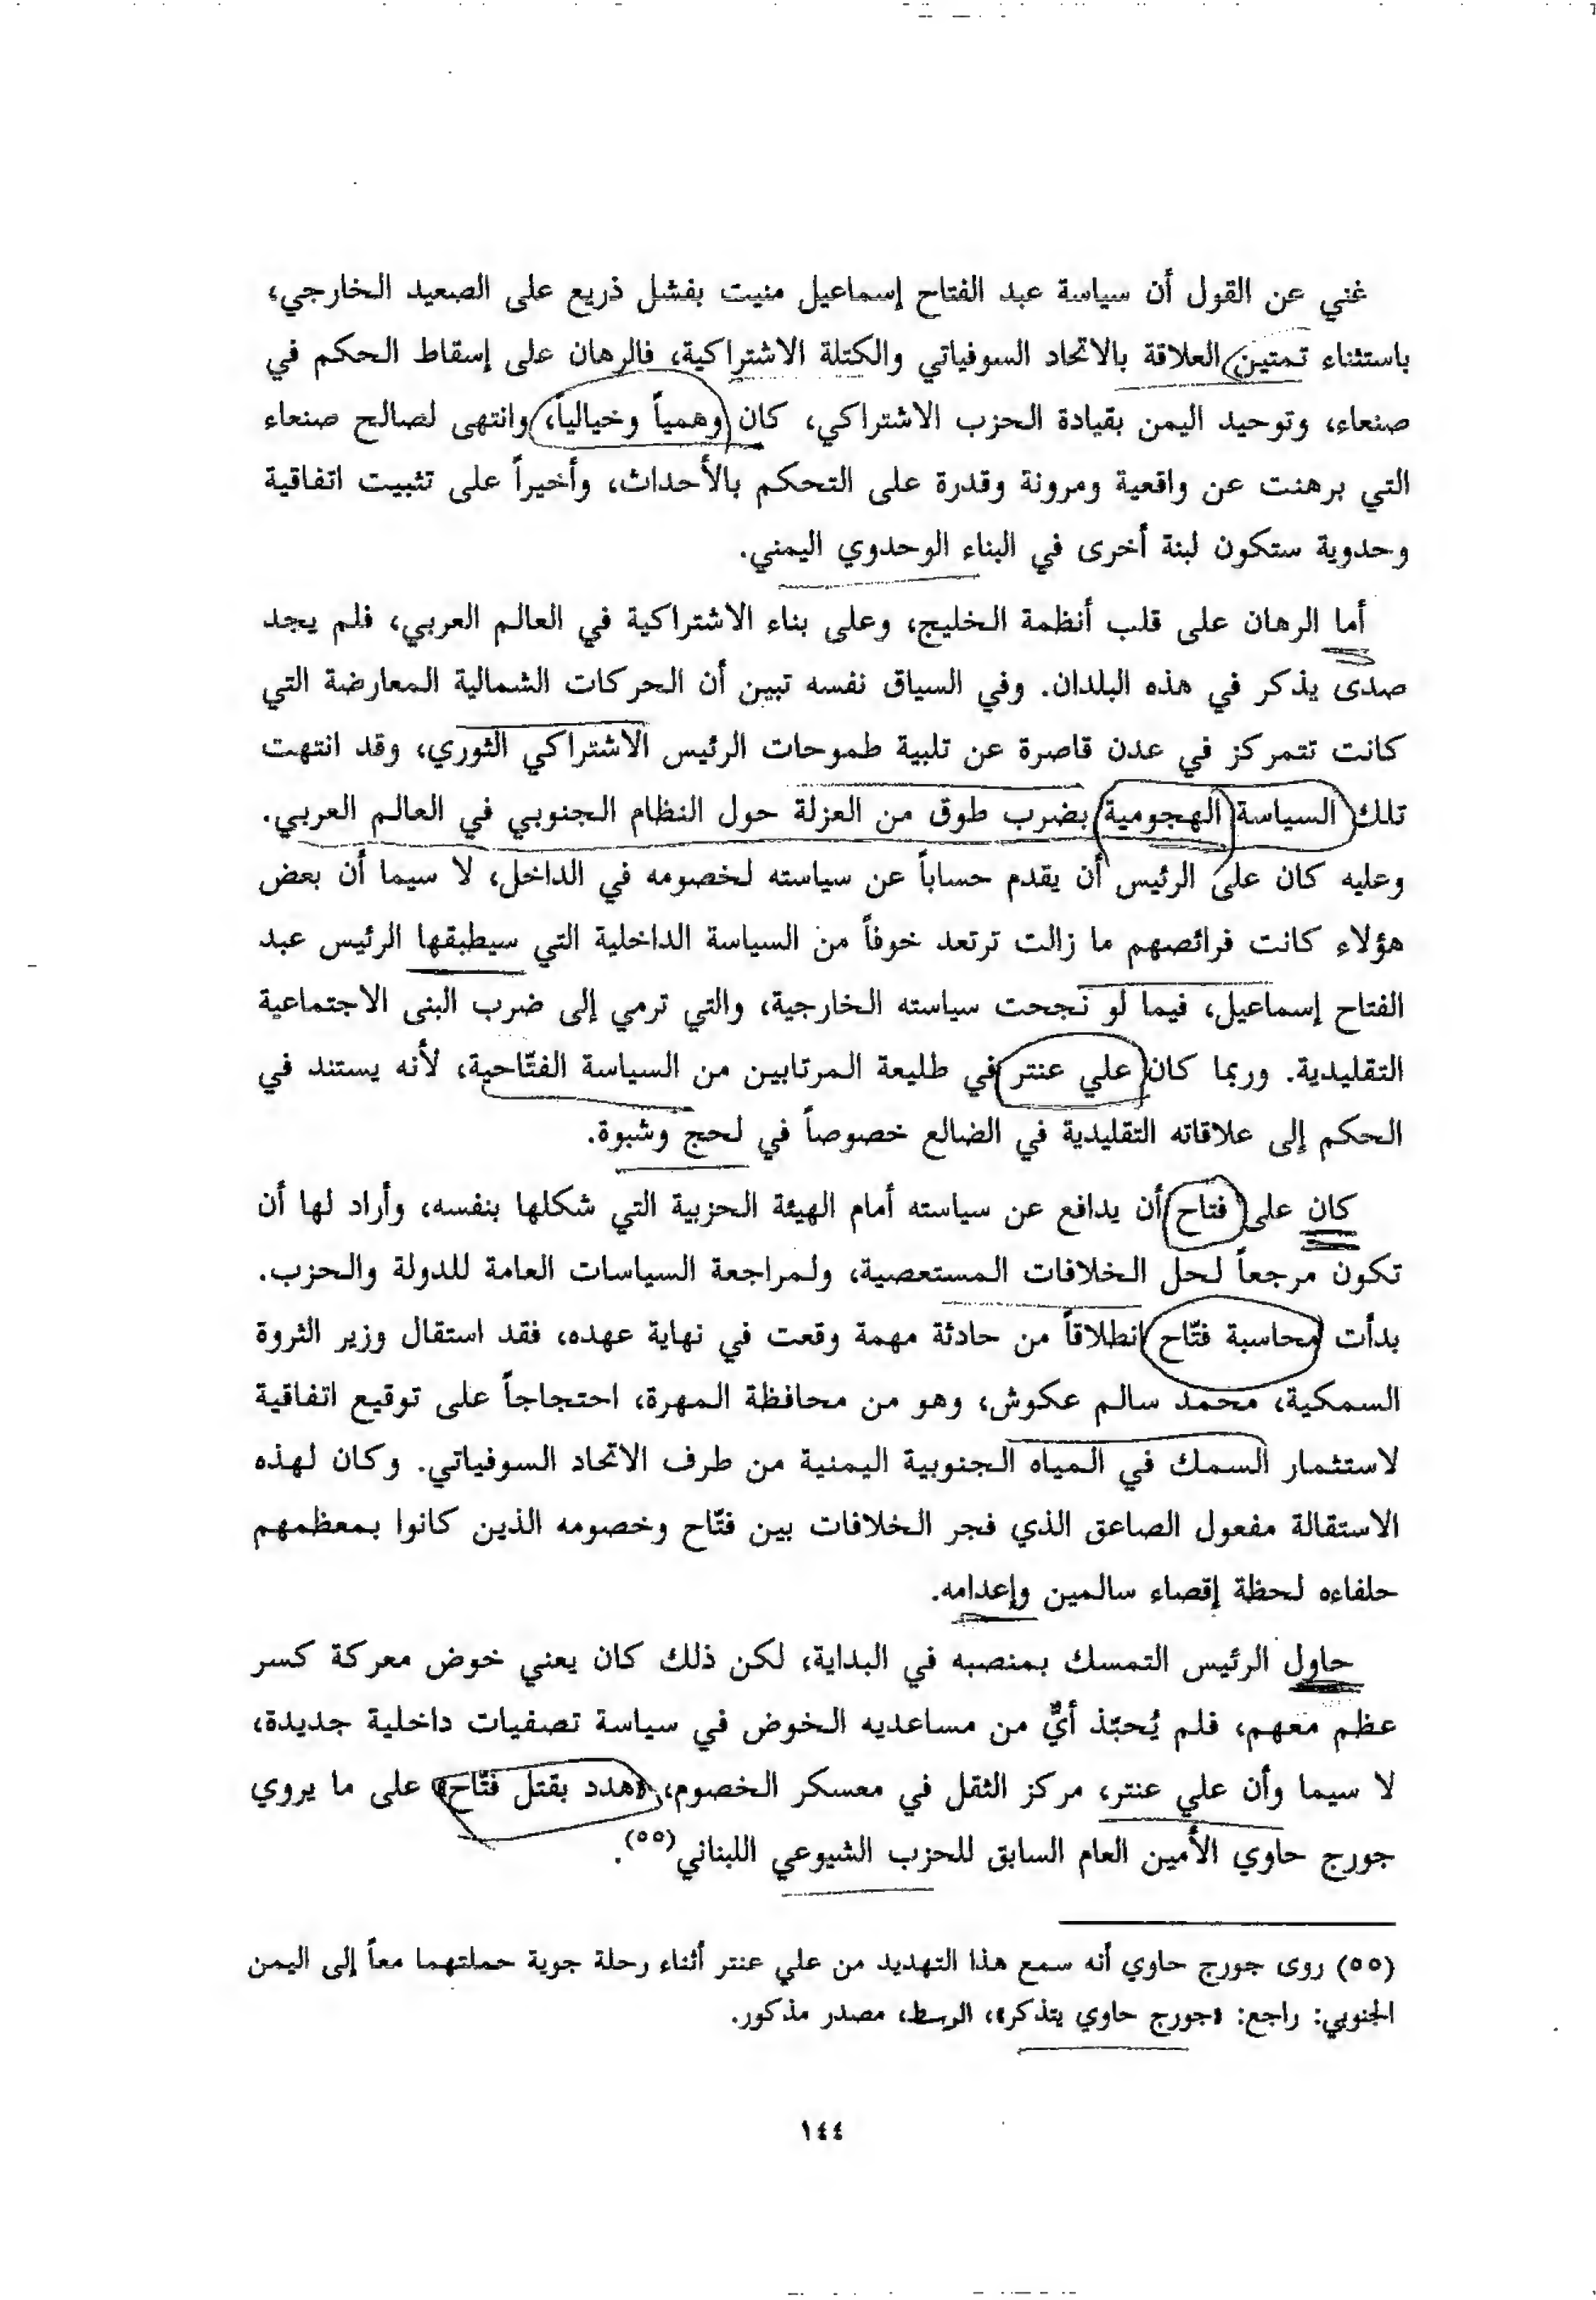 غني عن القول أن سياسة عبد الفتاح إسماعيل منيت بفشل ذريع على الصعيد الخارجي،
باستثناء تمتين العلاقة بالاتحاد السوفياتي والكتلة الاشتراكية، فالرهان على إسقاط الحكم في
صنعاء، وتوحيد اليمن بقيادة الحزب الاشتراكي، كان وهمياً وخيالياً، وانتهى لصالح صنعاء
التي برهنت عن واقعية ومرونة وقدرة على التحكم بالأحداث، وأخيراً على تثبيت اتفاقية
وحدوية ستكون لبنة أخرى في البناء الوحدوي اليمني.
أما الرهان على قلب أنظمة الخليج، وعلى بناء الاشتراكية في العالم العربي، فلم يجد
صدى يذكر في هذه البلدان. وفي السياق نفسه تبين أن الحركات الشمالية المعارضة التي
كانت تتمركز في عدن قاصرة عن تلبية طموحات الرئيس الاشتراكي الثوري، وقد انتهت
تلك السياسة الهجومية بضرب طوق من العزلة حول النظام الجنوبي في العالم العربي.
وعليه كان على الرئيس أن يقدم حساباً عن سياسته لخصومه في الداخل، لا سيما أن بعض
هؤلاء كانت فرائصهم ما زالت ترتعد خوفاً من السياسة الداخلية التي سيطبقها الرئيس عبد
الفتاح إسماعيل، فيما لو نجحت سياسته الخارجية، والتي ترمي إلى ضرب البنى الاجتماعية
التقليدية. وربما كان علي عنتر في طليعة المرتابين من السياسة الفتّاحية، لأنه يستند في
الحكم إلى علاقاته التقليدية في الضالع خصوصاً في لحج وشبوة.
كان على فتاح أن يدافع عن سياسته أمام الهيئة الحزبية التي شكلها بنفسه، وأراد لها أن
تكون مرجعاً لحل الخلافات المستعصية، ولمراجعة السياسات العامة للدولة والحزب.
بدأت محاسبة فتّاح انطلاقاً من حادثة مهمة وقعت في نهاية عهده، فقد استقال وزير الثروة
السمكية، محمد سالم عكوش، وهو من محافظة المهرة، احتجاجاً على توقيع اتفاقية
لاستثمار السمك في المياه الجنوبية اليمنية من طرف الاتحاد السوفياتي. وكان لهذه
الاستقالة مفعول الصاعق الذي فجر الخلافات بين فتّاح وخصومه الذين كانوا بمعظمهم
حلفاءه لحظة إقصاء سالمين وإعدامه.
حاول الرئيس التمسك بمنصبه في البداية، لكن ذلك كان يعني خوض معركة كسر
عظم معهم، فلم يُحبّذ أيٌّ من مساعديه الخوض في سياسة تصفيات داخلية جديدة،
لا سيما وأن علي عنتر، مركز الثقل في معسكر الخصوم، «هدد بقتل فتّاح» على ما يروي
جورج حاوي الأمين العام السابق للحزب الشيوعي اللبناني(٥٥).
(٥٥) روى جورج حاوي أنه سمع هذا التهديد من علي عنتر أثناء رحلة جوية حملتهما معاً إلى اليمن
الجنوبي: راجع: «جورج حاوي يتذكر»، الوسط، مصدر مذكور.
١٤٤